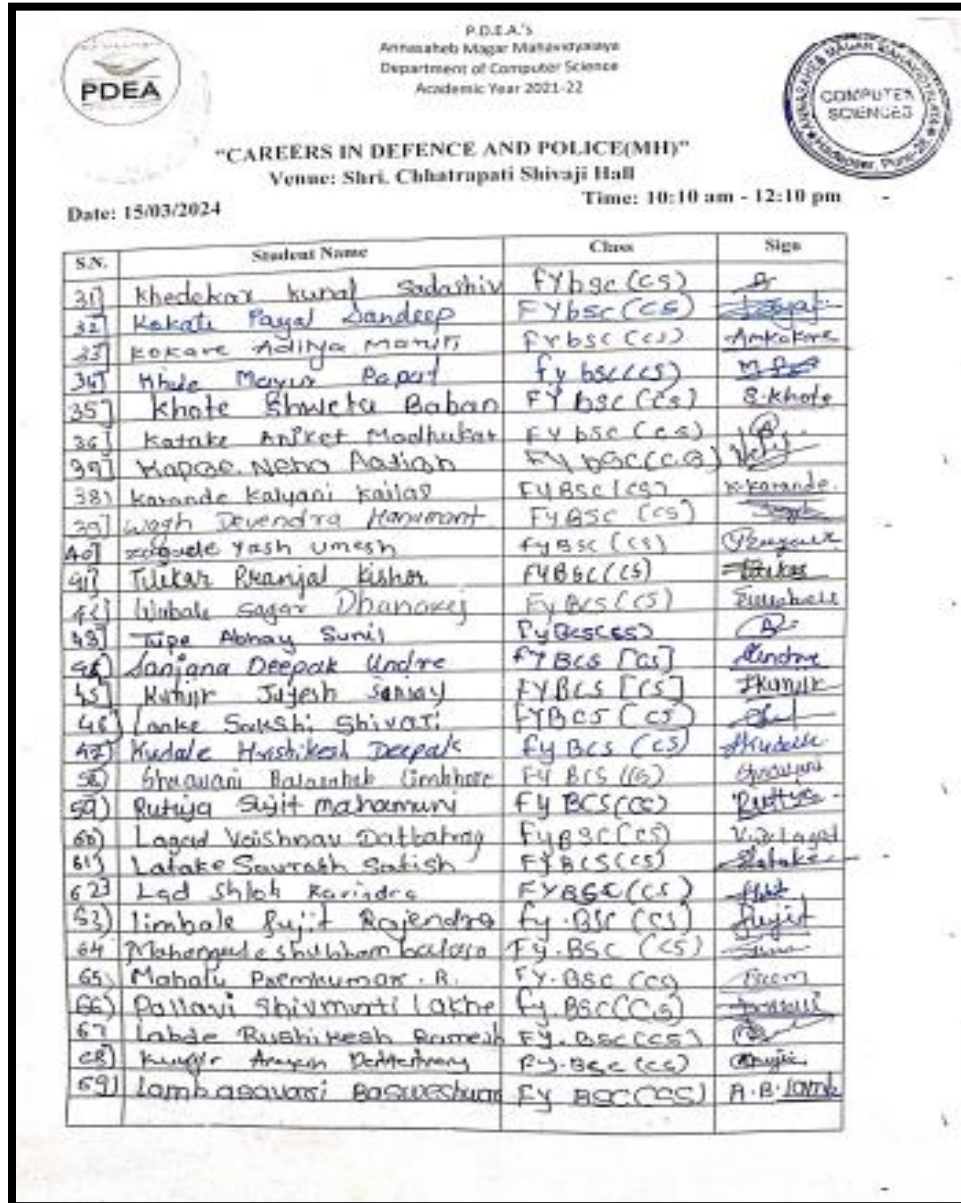 PDEA
P.D.E.A.'s
Annasaheb Magar Mahavidyalaya
Department of Computer Science
Academic Year 2021-22
ANNASAHEB MAGAR MAHAVIDYALAYA
COMPUTER
SCIENCES
Hadapsar, Pune-28
"CAREERS IN DEFENCE AND POLICE(MH)"
Venue: Shri. Chhatrapati Shivaji Hall
Date: 15/03/2024 Time: 10:10 am - 12:10 pm
S.N. Student Name Class Sign
31] Khedekar Kunal Sadashiv FYbsc(cs)
32] Kakate Payal Sandeep FYbsc(cs)
33] Kokare Aditya Maruti FYbsc(cs) Amkokare
34] Khule Mayur Popat fybsc(cs)
35] Khote Shweta Baban FYbsc(cs) S.khote
36] Katake Aniket Madhukar FYbsc(cs)
37] Kapse Neha FYbsc(c.s)
38) Karande Kalyani Kailas FyBsc(cs) K.karande.
39] Wagh Devendra Hanumant FyBSc (cs)
40] Yash Umesh fyBSc (cs)
41] Tilekar Pranjal Kishor FYBSc(cs)
Wabale Sagar Dhanaraj FyBCS(CS)
43) Tupe Abhay Sunil FyBcs(cs)
44) Sanjana Deepak Undre FYBCS [CS] Undre
45] Kunjir Jayesh Sanjay FYBCS [CS] Jkunjir
46) Lanke Sakshi Shivaji FYBCS (CS)
47) Kudale Hrishikesh Deepak fyBcs (cs)
58) Shravani Balasaheb Limbhore FYBCS (CS) Shravani
59) Rutuja Sujit Mahamuni FyBCS(CS)
60) Lagad Vaishnav Dattatray FyBSC(CS)
61) Latake Saurabh Satish FYBCS(CS)
62] Lad Shlok Ravindra FYBSC(CS)
63) Limbale Sujit Rajendra fy.BSC (CS) Sujit
64 Mahangade Shubham Fy.BSC (CS)
65) Mahali Premkumar.R. FY.BSC (CS) Prem
66) Pallavi Shivmurti Lakhe fy.BSC(C.S)
67 Labde Rushikesh Ramesh FY.BSC(CS)
68) Kunjir Fy.BSc (cs)
69] Lambasavari Basweshwar FY BSC(CS) A.B.Lamb